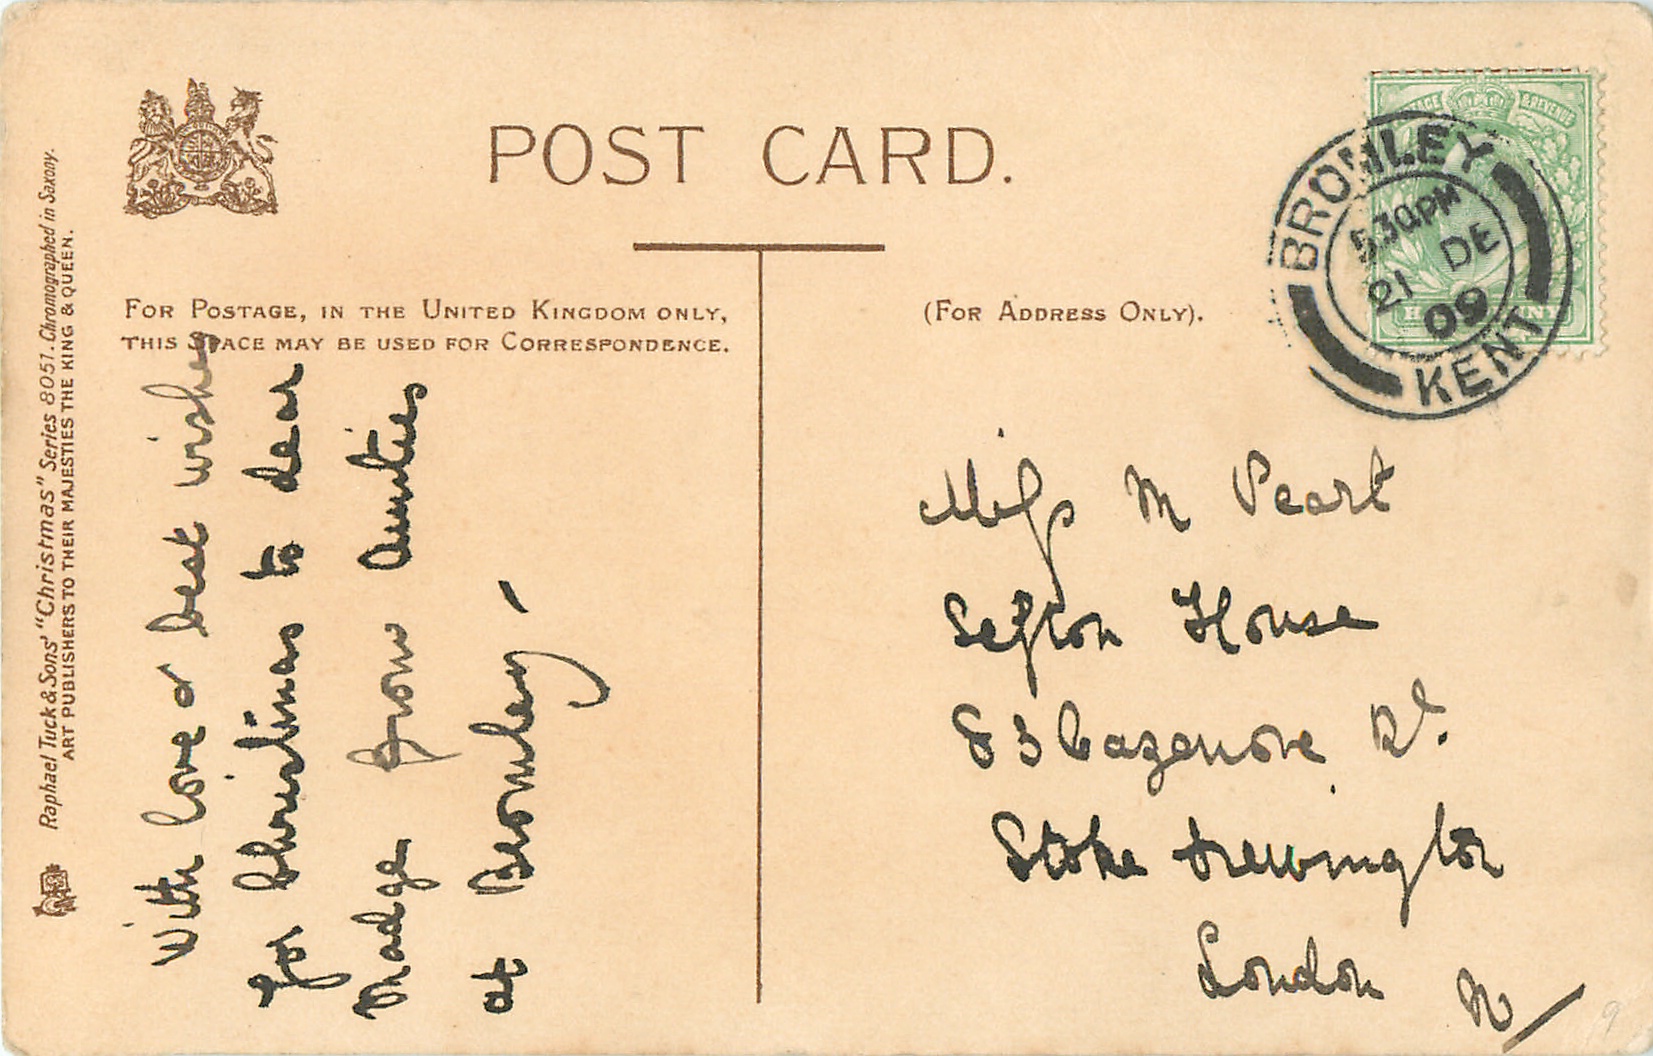 POST CARD.
FOR POSTAGE, IN THE UNITED KINGDOM ONLY,
THIS SPACE MAY BE USED FOR CORRESPONDENCE.
(FOR ADDRESS ONLY).
Raphael Tuck & Sons' "Christmas" Series 8051. Chromographed in Saxony.
ART PUBLISHERS TO THEIR MAJESTIES THE KING & QUEEN.
With love & best wishes
for Christmas to dear
Madge from Aunties
at Bromley
POSTAGE & REVENUE
HALFPENNY
BROMLEY
5.30PM
21 DE
09
KENT
Miss M Peart
Sefton House
83 Cazenove Rd.
Stoke Newington
London N
9